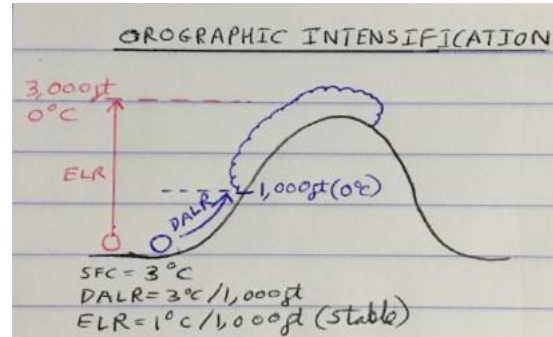 OROGRAPHIC INTENSIFICATION
3,000ft
0°C
ELR
DALR
1,000ft (0°C)
SFC = 3°C
DALR = 3°C/1,000ft
ELR = 1°C/1,000ft (stable)